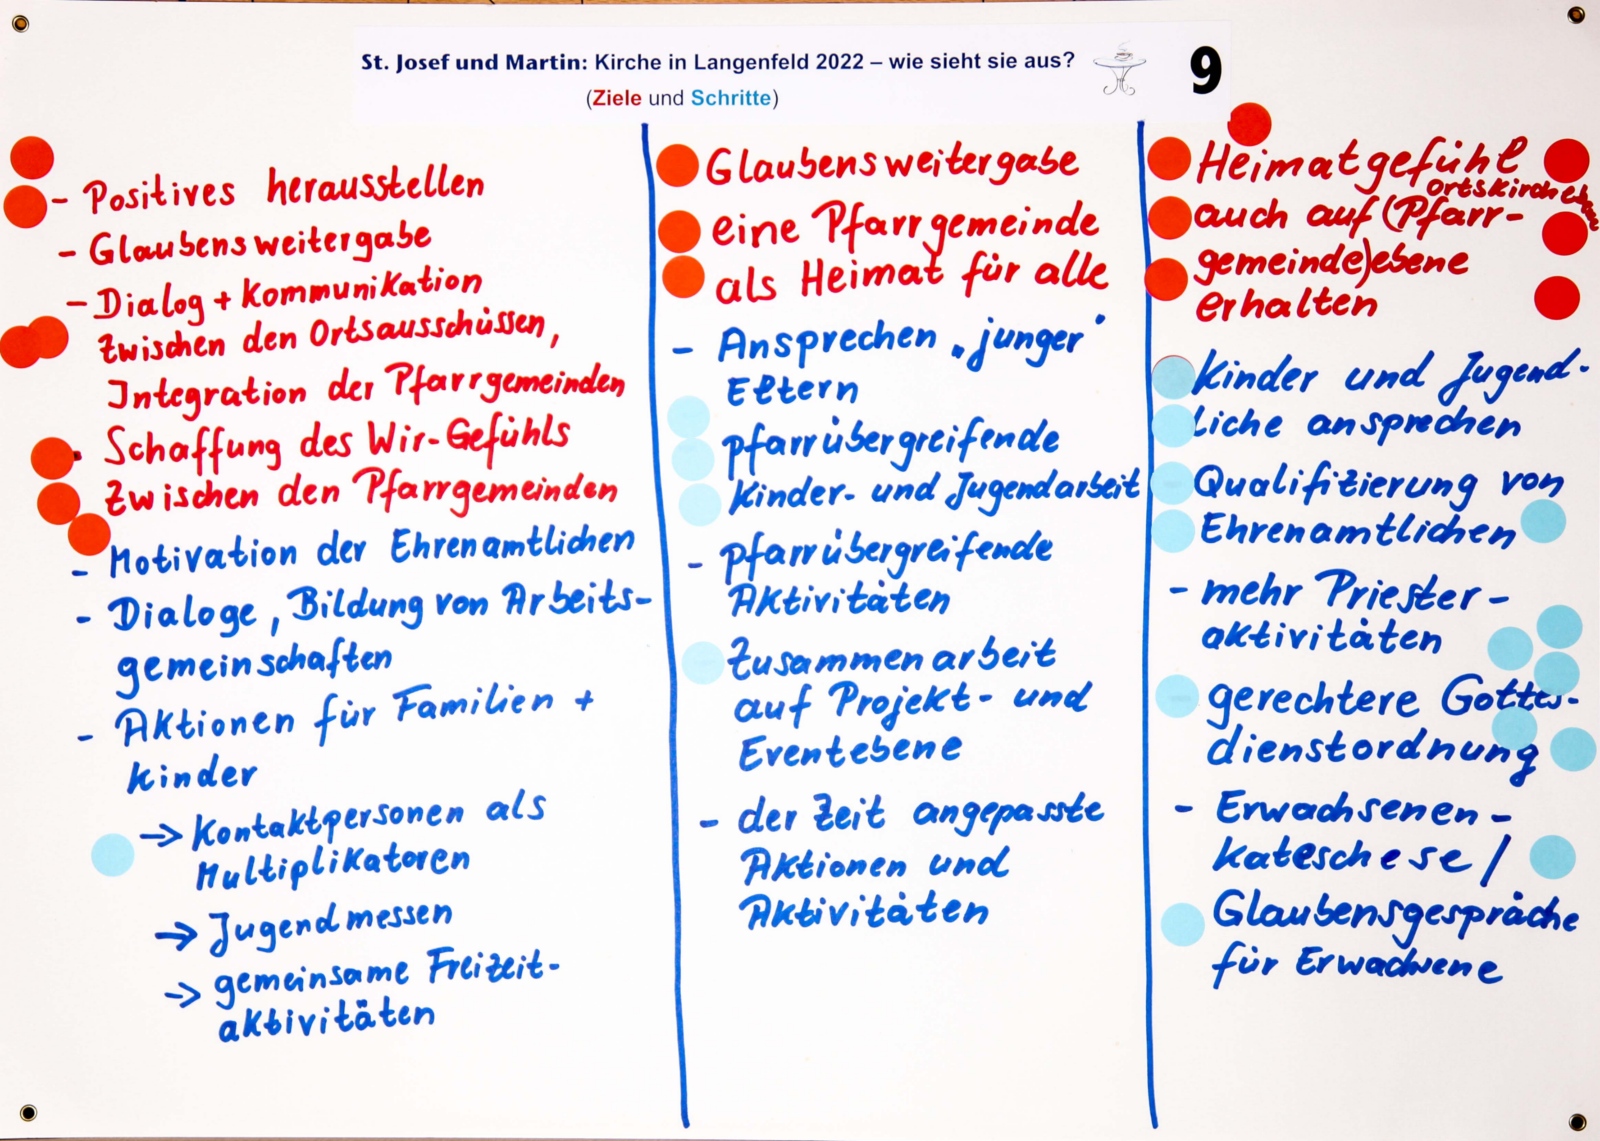 St. Josef und Martin: Kirche in Langenfeld 2022 – wie sieht sie aus?
(Ziele und Schritte)
9
- Positives herausstellen
- Glaubensweitergabe
- Dialog + Kommunikation
zwischen den Ortsausschüssen,
Integration der Pfarrgemeinden
- Schaffung des Wir-Gefühls
zwischen den Pfarrgemeinden
- Motivation der Ehrenamtlichen
- Dialoge, Bildung von Arbeits-
gemeinschaften
- Aktionen für Familien +
Kinder
→ Kontaktpersonen als
Multiplikatoren
→ Jugendmessen
→ gemeinsame Freizeit-
aktivitäten
Glaubensweitergabe
eine Pfarrgemeinde
als Heimat für alle
- Ansprechen „junger"
Eltern
pfarrübergreifende
Kinder- und Jugendarbeit
- pfarrübergreifende
Aktivitäten
Zusammenarbeit
auf Projekt- und
Eventebene
- der Zeit angepasste
Aktionen und
Aktivitäten
Heimatgefühl
Ortskirchebene
auch auf (Pfarr-
gemeinde)ebene
erhalten
Kinder und Jugend-
liche ansprechen
Qualifizierung von
Ehrenamtlichen
- mehr Priester-
aktivitäten
gerechtere Gottes-
dienstordnung
- Erwachsenen-
kateschese /
Glaubensgespräche
für Erwachsene